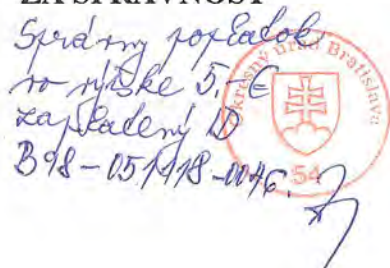 ZA SPRÁVNOSŤ
Správny poplatok
vo výške 5,- €
zaplatený D
B98-051118-0046.
Okresný úrad Bratislava
54